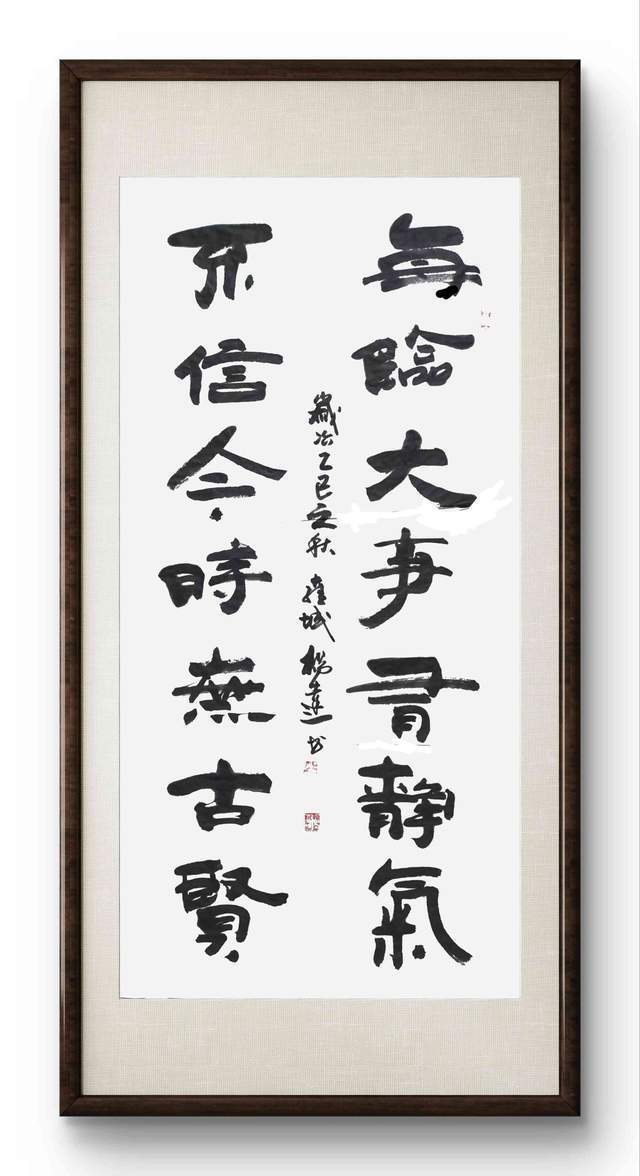 每臨大事有靜氣
不信今時無古賢
歲次乙巳之秋 城 楊 书